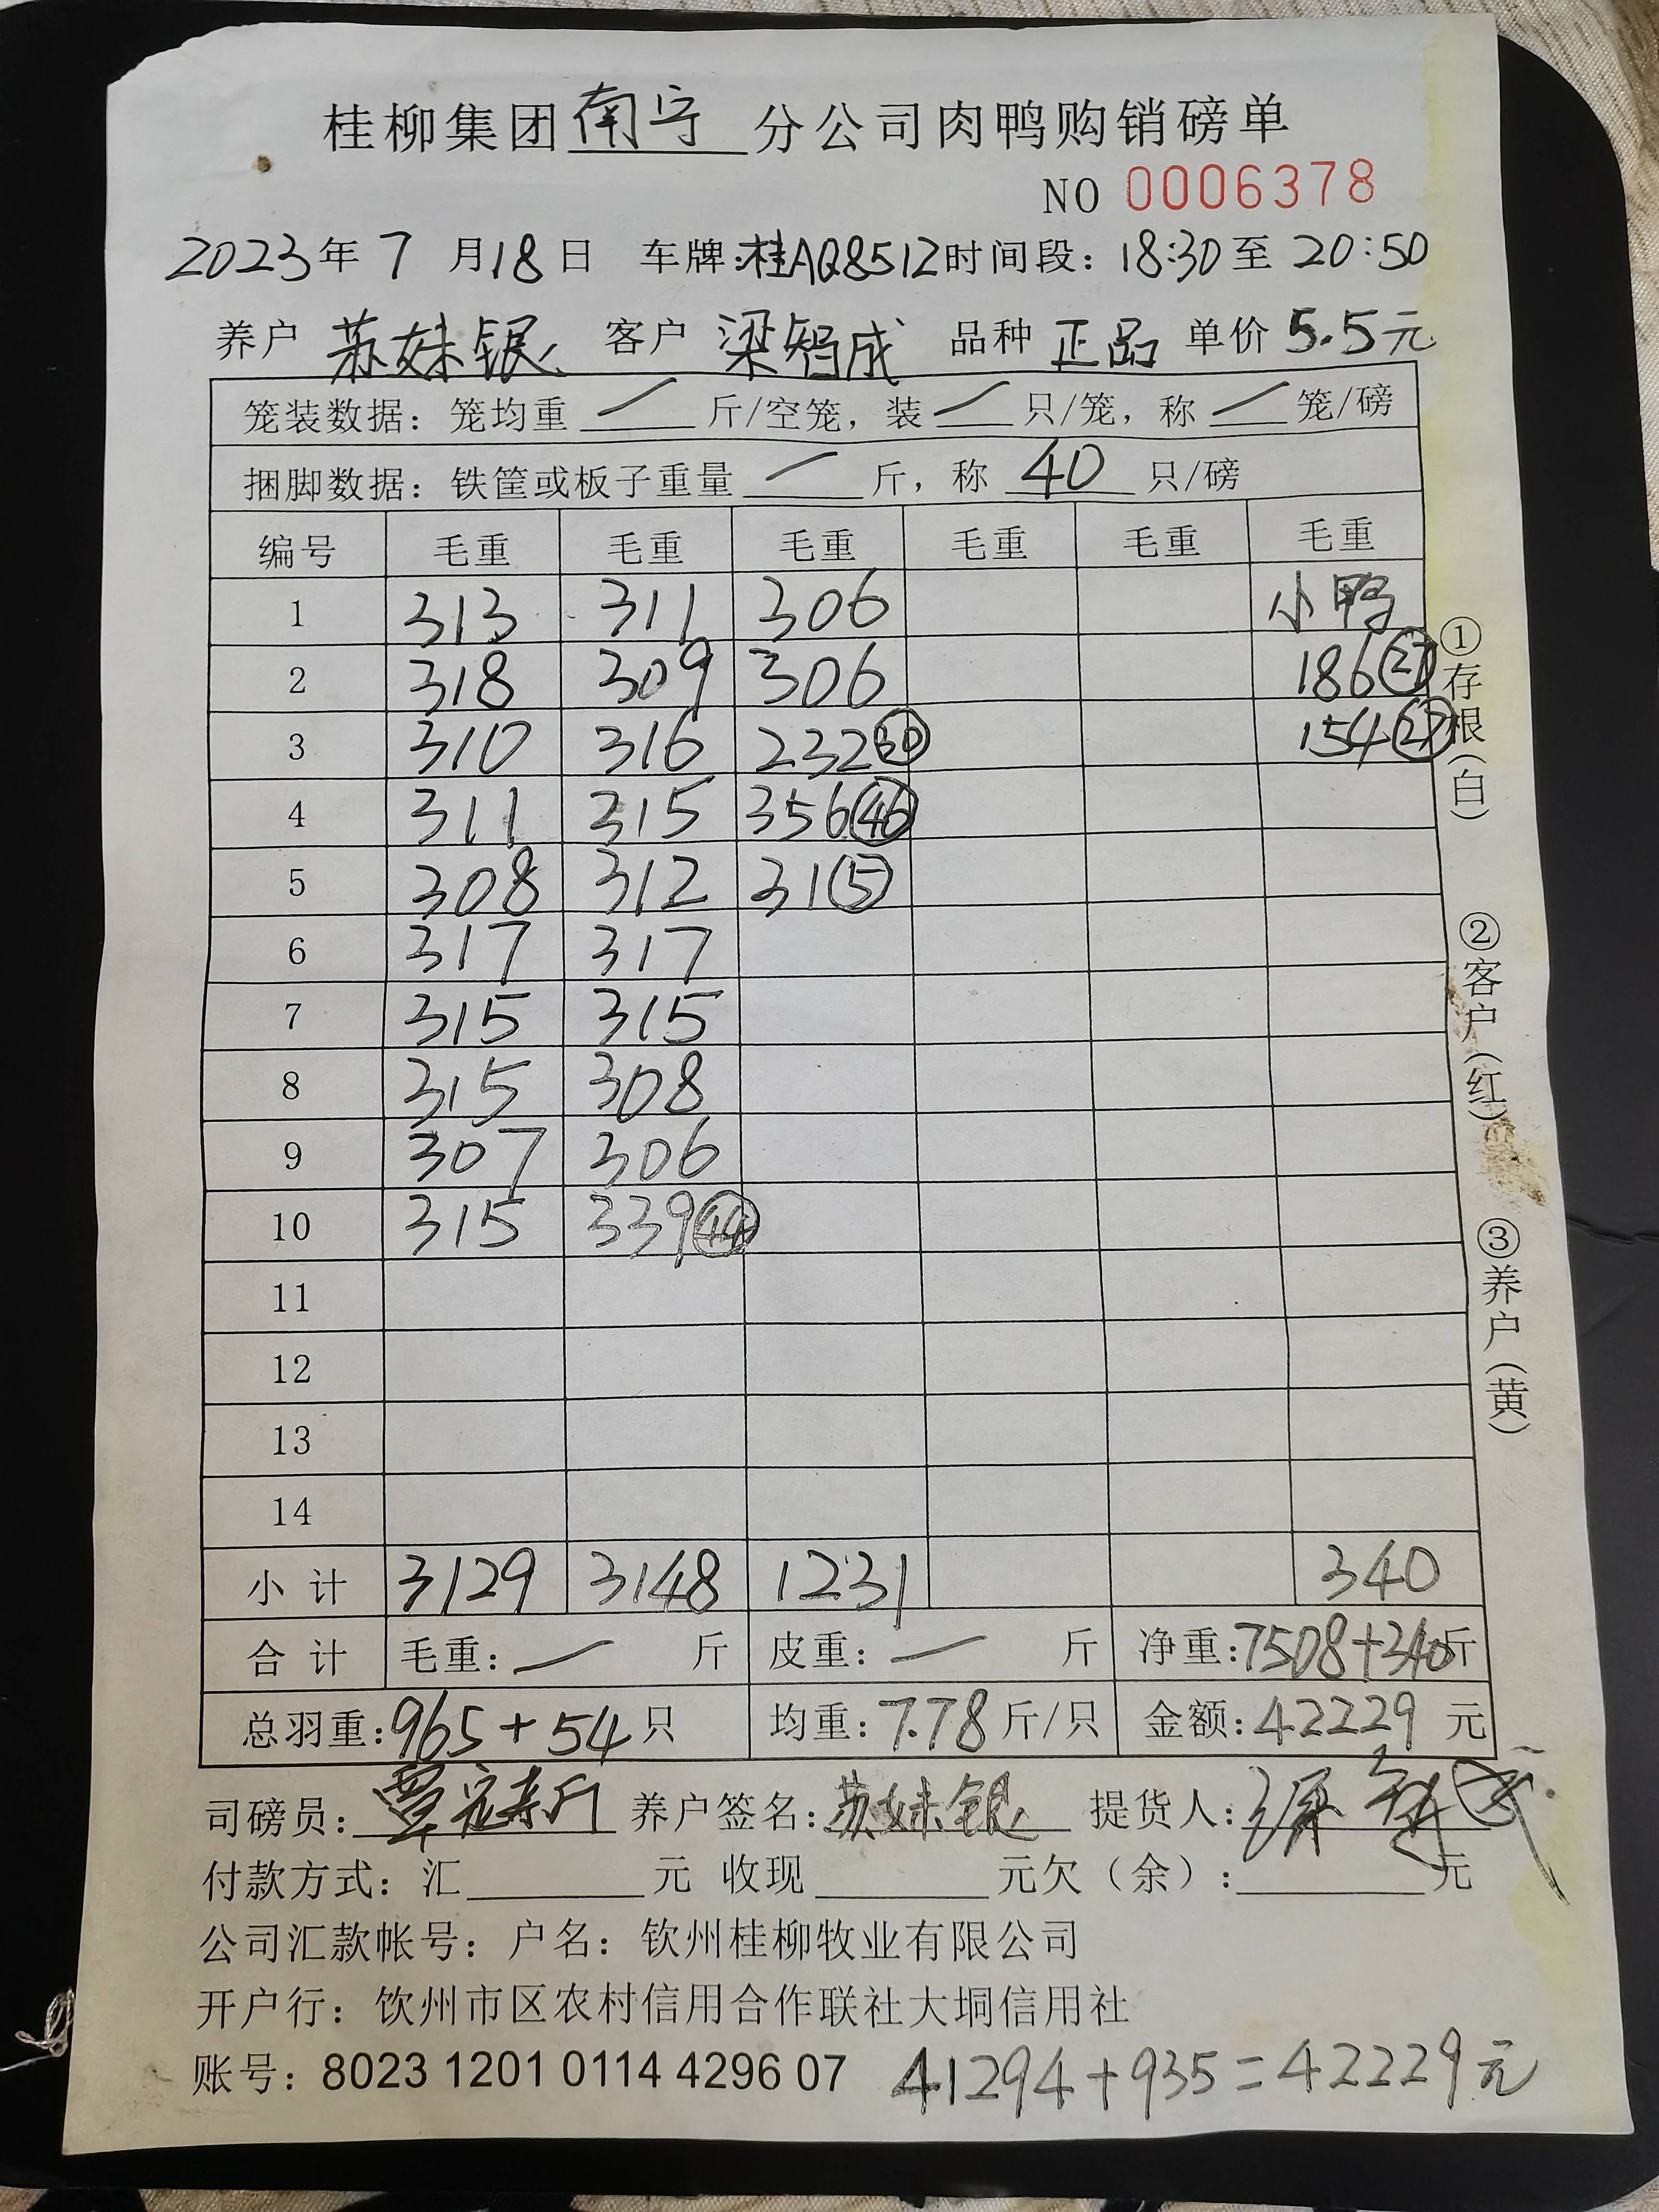 桂柳集团南宁分公司肉鸭购销磅单
NO 0006378
2023年7月18日 车牌:桂AQ8512时间段：18:30至20:50
养户 苏妹银 客户 梁智成 品种 正品 单价 5.5元
笼装数据：笼均重 — 斤/空笼，装 — 只/笼，称 — 笼/磅
捆脚数据：铁筐或板子重量 — 斤，称 40 只/磅
编号 毛重 毛重 毛重 毛重 毛重 毛重
1 313 311 306 小鸭
2 318 309 306 186(27)
3 310 316 232(30) 154(27)
4 311 315 356(46)
5 308 312 31(5)
6 317 317
7 315 315
8 315 308
9 307 306
10 315 339(44)
11
12
13
14
小计 3129 3148 1231 340
合计 毛重：— 斤 皮重：— 斤 净重:7508+340斤
总羽重:965+54只 均重:7.78斤/只 金额:42229元
司磅员: 养户签名:苏妹银 提货人:
付款方式：汇 元 收现 元欠（余）: 元
公司汇款帐号：户名：钦州桂柳牧业有限公司
开户行：钦州市区农村信用合作联社大垌信用社
账号：8023 1201 0114 4296 07 41294+935=42229元
①存根(白)
②客户(红)
③养户(黄)